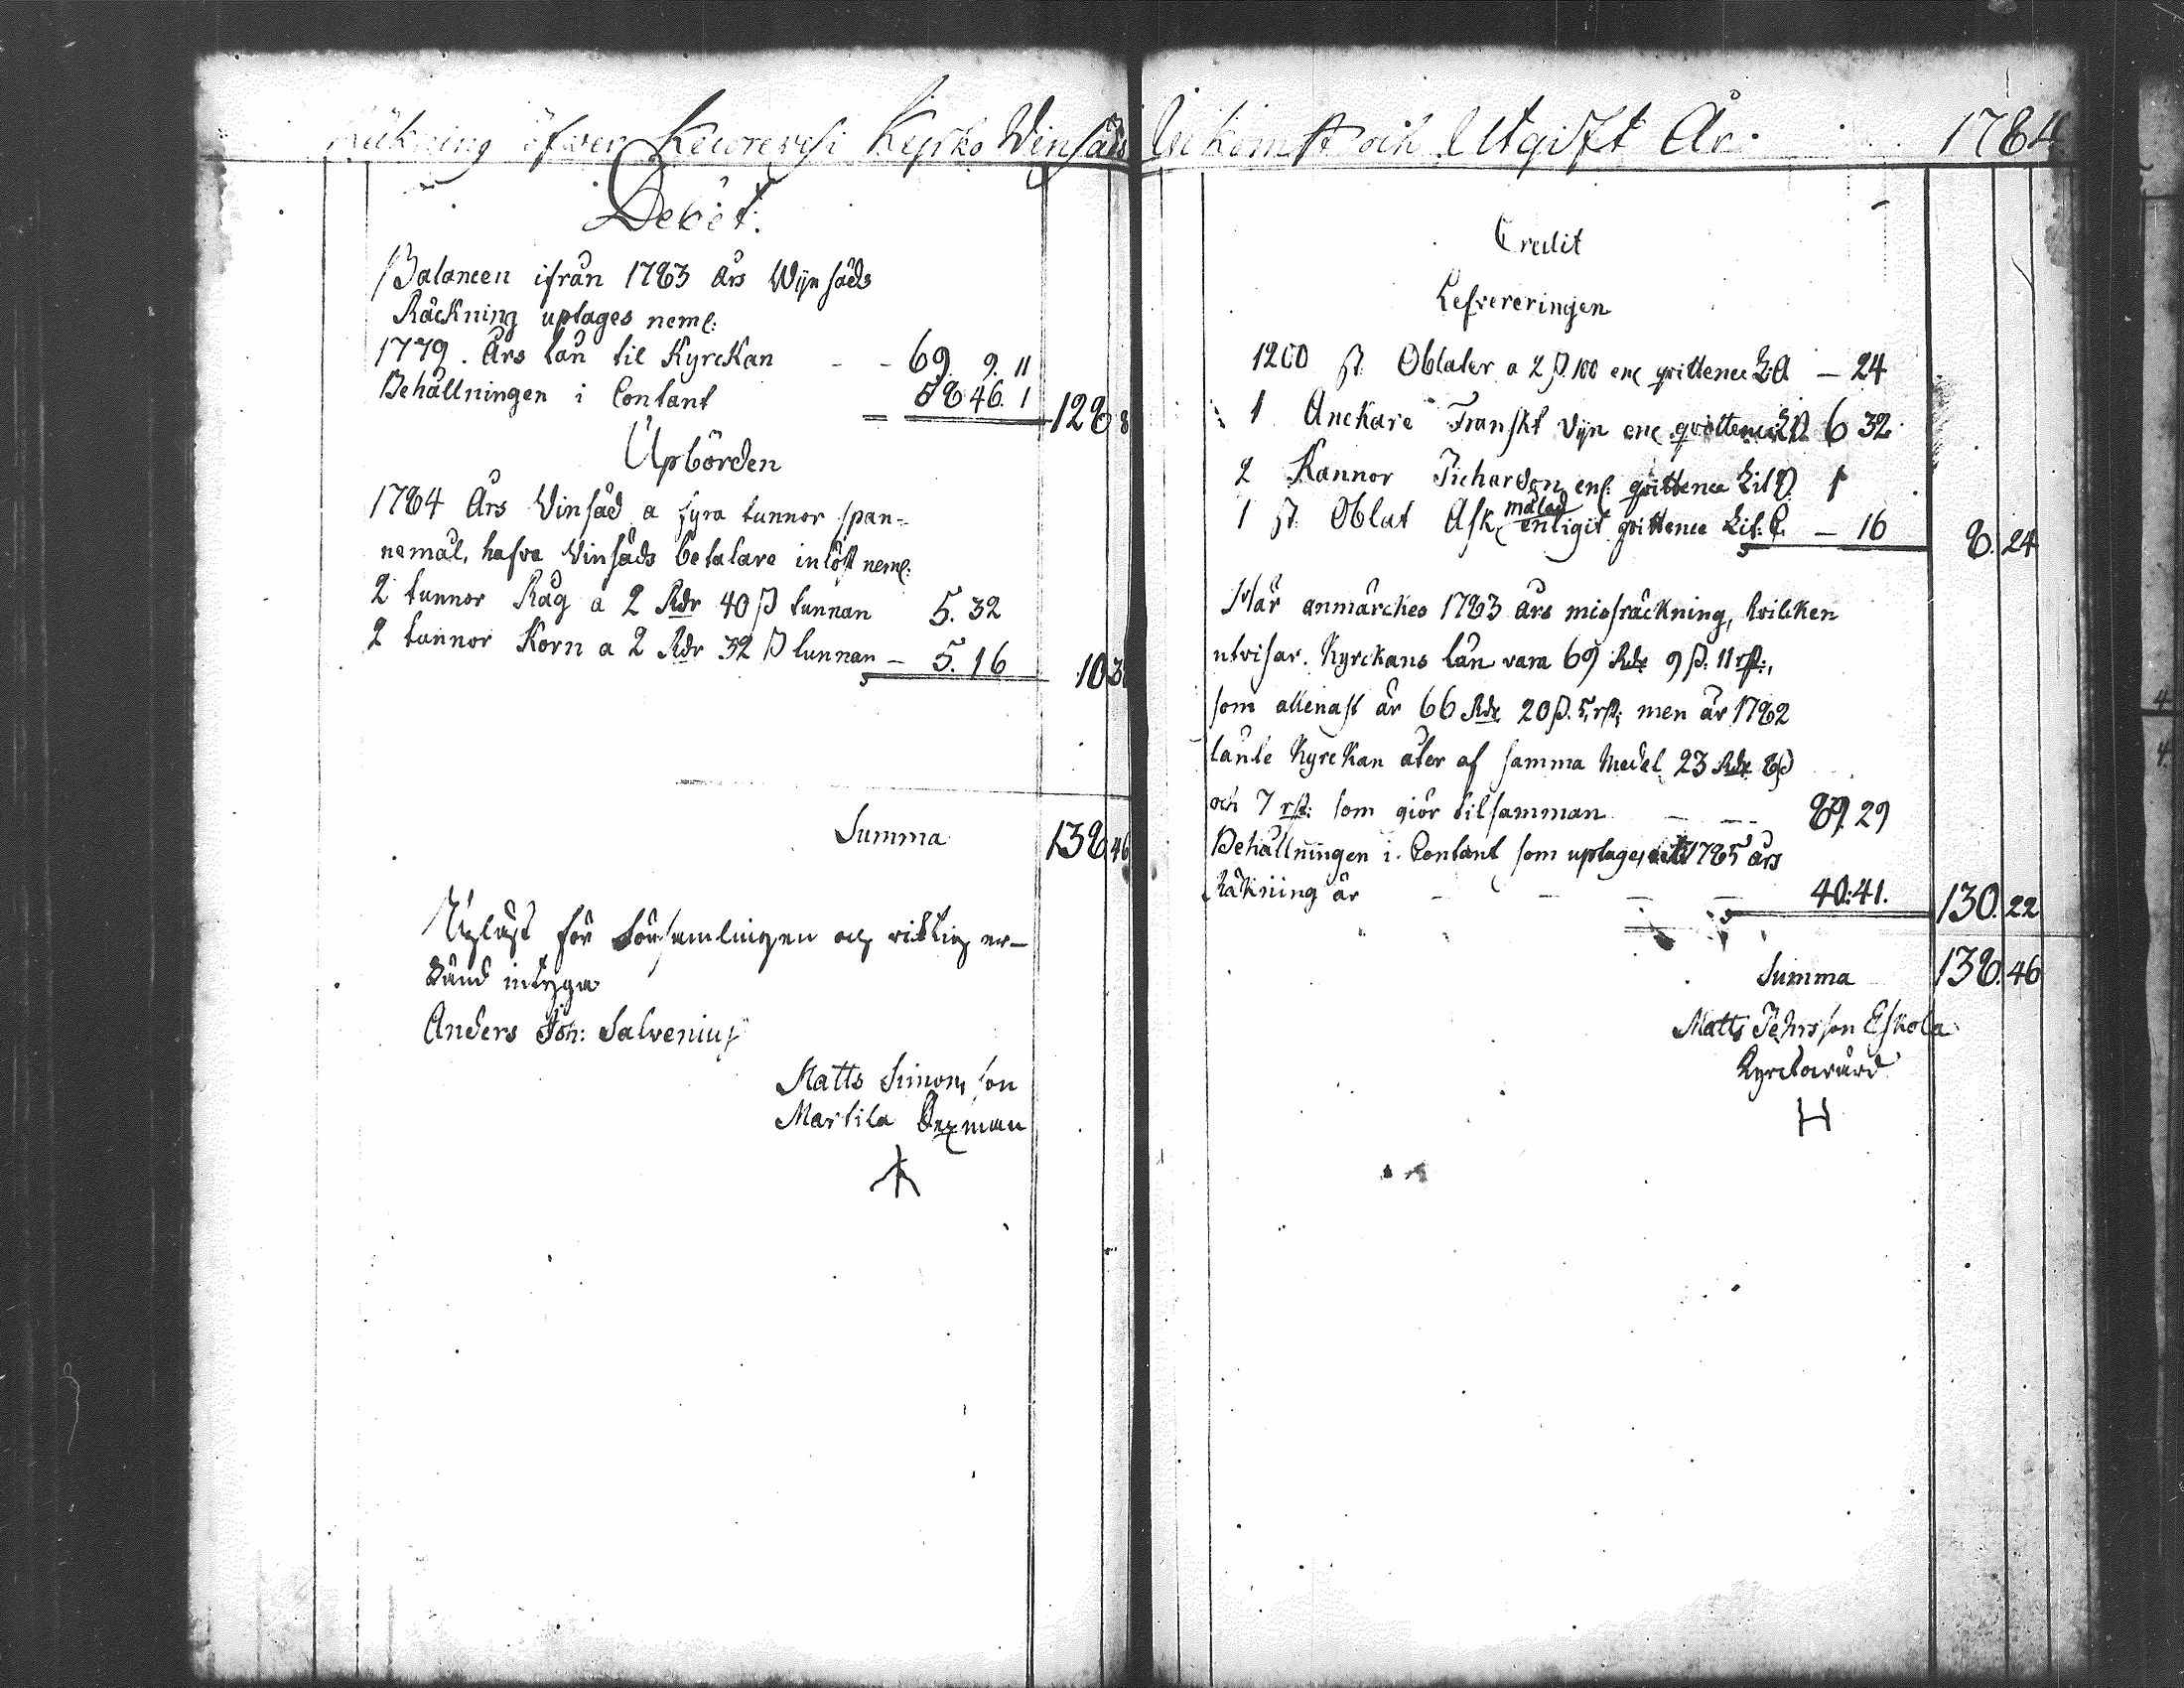 Räkning öfwer Keurevesi Kyrko Winsäds Inkomst och Utgift År: 1784
Debet:
Balancen ifrån 1783 års Wijn säds
Räckning uptages neml:
1779. Års lån til Kyrckan - - 69. 9. 11
Behållningen i Contant 58 46. 1 128 8
Upbörden
1784 Års Vinsäd a fyra tunnor span-
nemål, hafva Vinsäds betalare inlöst neml:
2 tunnor Råg a 2 Rdr 40 ß tunnan 5. 32
2 tunnor Korn a 2 Rdr 32 ß tunnan - 5. 16 10
Summa 138 46
Upläst för Församlingen och richtig er-
känd intyga
Anders Joh: Salvenius
Matts Simonsson
Martila Sexman
Credit
Lefvereringen
1200 st. Oblater a 2 ß. 100 enl qvittence L: A - 24
1 Anckare Franskt Vijn enl qvittence 6 32
2 Kannor Pichardon enl: qvittence Lit 1
målad
1 st. Oblat Ask enligit qvittence Lit: C. - 16 8. 24
Här anmärckes 1783 års missräckning, hvilcken
utvisar. Kyrckans lån vara 69 Rdr 9 ß. 11 rst:,
som allenast är 66 Rdr 20 ß. 5 rst; men år 1782
lånte Kyrckan åter af samma Medel 23 Rdr 8 ß
och 7 rst: som giör tilsamman - - 89. 29
Behållningen i Contant som uptages 1785 års
Räkning är - - - - 40:41. 130. 22
Summa 138. 46
Matts Pehrsson Eskola
Kyrckovärd
H